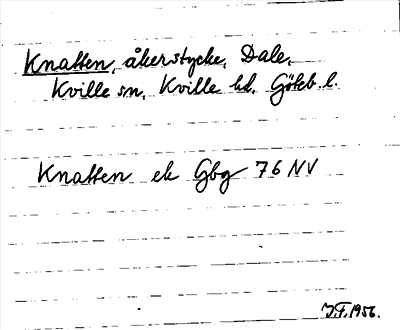 Knatten, åkerstycke, Dale,
Kville sn, Kville hd, Göteb. l.
Knatten ek Gbg 76 NV
J.F. 1956.